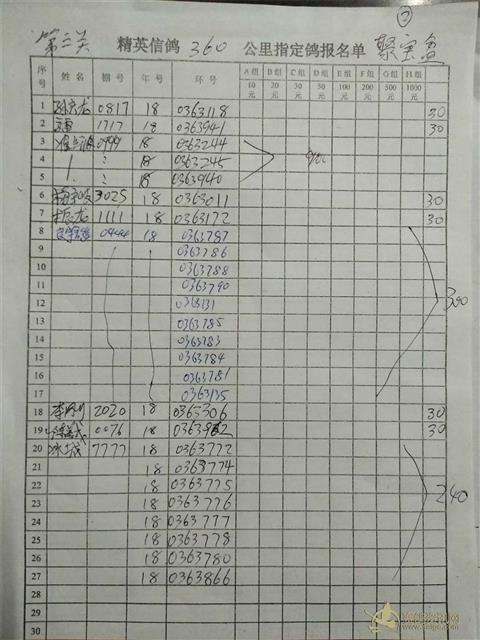 ②
第三关 精英信鸽 360 公里指定鸽报名单 聚宝盆
序号 姓名 棚号 年号 环号 A组 B组 C组 D组 E组 F组 G组 H组
10元 20元 30元 50元 100元 200元 500元 1000元
1 0817 18 0363118 30
2 1717 18 0363941 30
3 0799 18 0363244
4 ? 18 0363245
5 ? 18 0363940
6 3025 18 0363011 30
7 1111 18 0363172 30
8 0444 18 0363787
9 0363786
10 0363788
11 0363790
12 0363131 300
13 0363785
14 0363783
15 0363784
16 0363781
17 0363135
18 2020 18 0365306 30
19 0076 18 30
20 冰城 7777 18 0363772
21 18 0363774
22 18 0363775 240
23 18 0363776
24 18 0363777
25 18 0363778
26 18 0363780
27 18 0363866
28
29
30